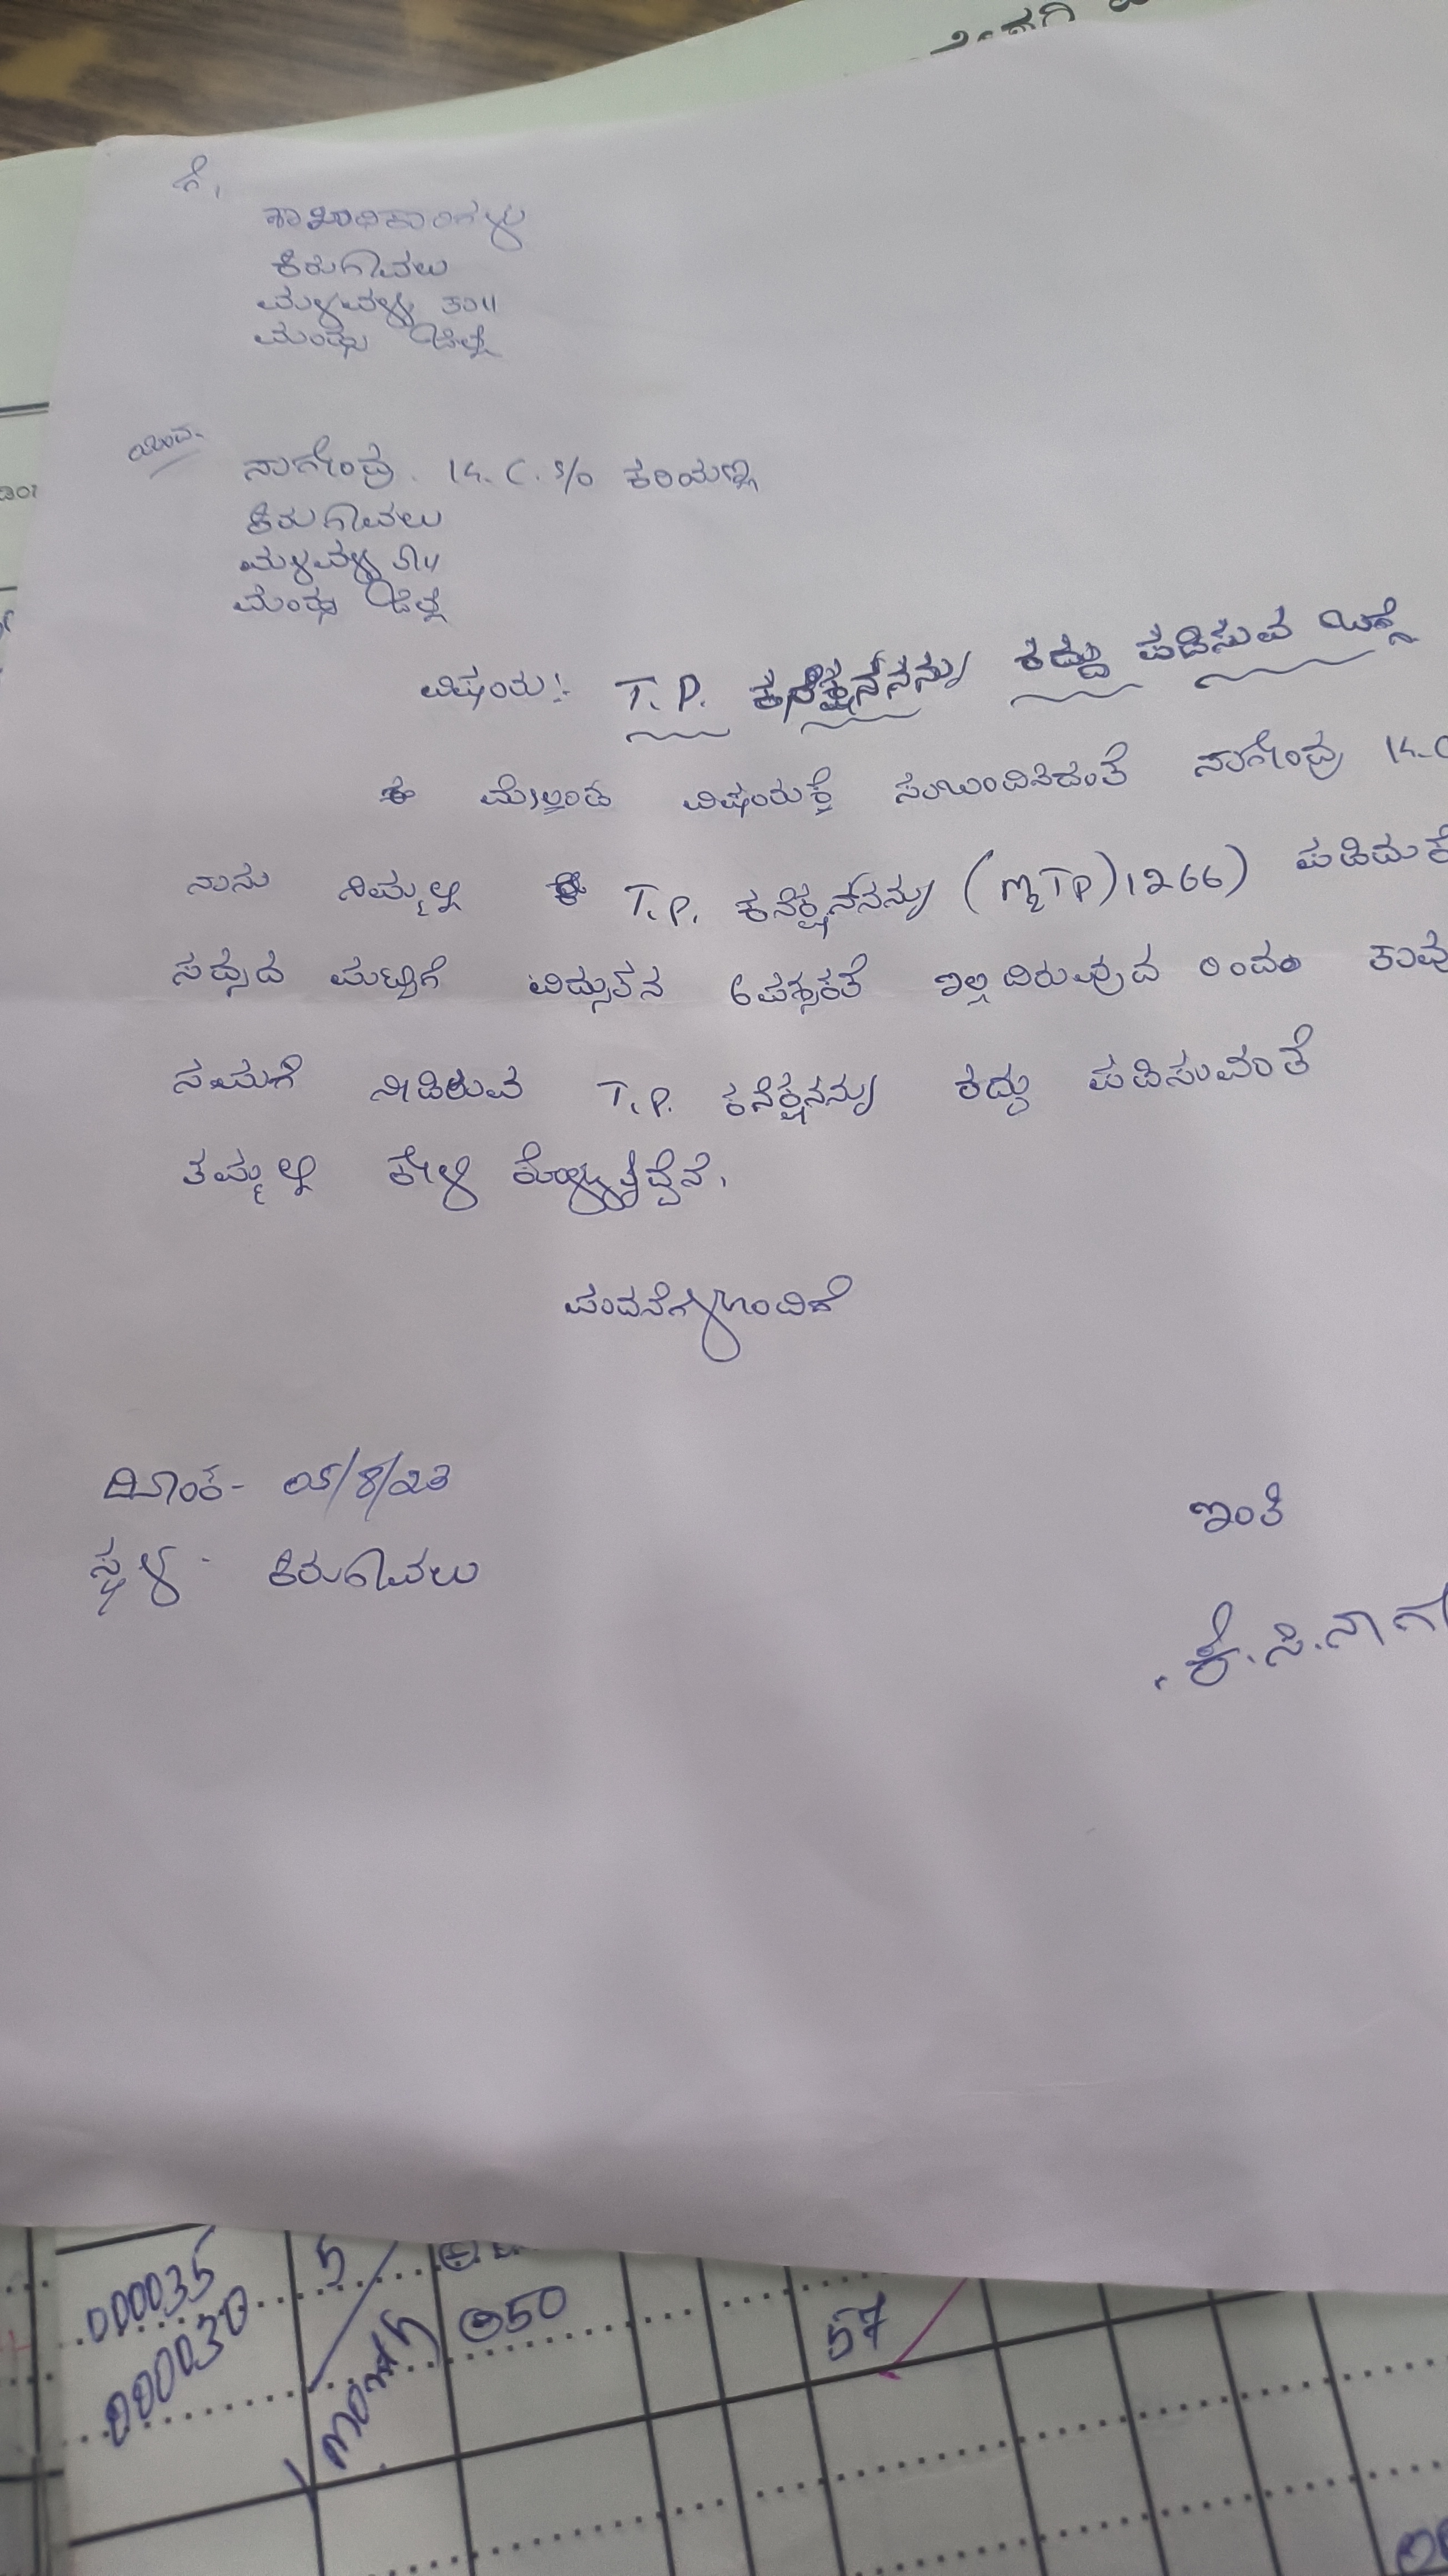 ಗೆ,
ಶಾಖಾಧಿಕಾರಿಗಳು
ಕಿರುಗಾವಲು
ಮಳವಳ್ಳಿ ತಾ॥
ಮಂಡ್ಯ ಜಿಲ್ಲೆ
ಯಿಂದ-
ನಾಗೇಂದ್ರ. K. C. S/o ಕರಿಯಣ್ಣ
ಕಿರುಗಾವಲು
ಮಳವಳ್ಳಿ ತಾ॥
ಮಂಡ್ಯ ಜಿಲ್ಲೆ
ವಿಷಯ:- T. P. ಕನೆಕ್ಷನ್‌ನನ್ನು ರದ್ದು ಪಡಿಸುವ ಬಗ್ಗೆ
ಈ ಮೇಲ್ಕಂಡ ವಿಷಯಕ್ಕೆ ಸಂಬಂದಿಸಿದಂತೆ ನಾಗೇಂದ್ರ K. C
ನಾನು ನಿಮ್ಮಲ್ಲಿ ಈ T. P. ಕನೆಕ್ಷನ್‌ನನ್ನು (MTP) 1266) ಪಡೆದು
ಸದ್ಯದ ಮಟ್ಟಿಗೆ ವಿದ್ಯುತ್‌ನ ಅವಶ್ಯಕತೆ ಇಲ್ಲದಿರುವುದ ರಿಂದ ತಾವು
ನಮಗೆ ನೀಡಿರುವ T. P. ಕನೆಕ್ಷನನ್ನು ರದ್ದು ಪಡಿಸುವಂತೆ
ತಮ್ಮಲ್ಲಿ ಕೇಳಿ ಕೊಳ್ಳುತ್ತಿದ್ದೇನೆ.
ವಂದನೆಗಳೊಂದಿಗೆ
ದಿನಾಂಕ- 05/8/23
ಸ್ಥಳ - ಕಿರುಗಾವಲು
ಇಂತಿ
ಕೆ. ಸಿ. ನಾಗ
000035 5
000030 1 month 250 57